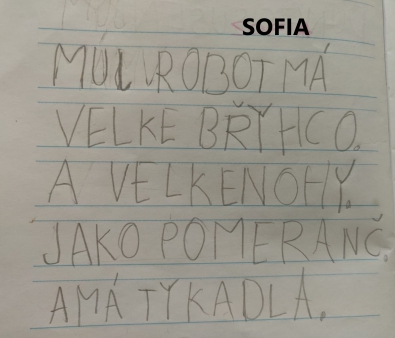 SOFIA
MŮJ ROBOT MÁ
VELKE BŘÝHCO.
A VELKENOHY.
JAKO POMERANČ.
AMÁ TYKADLA.